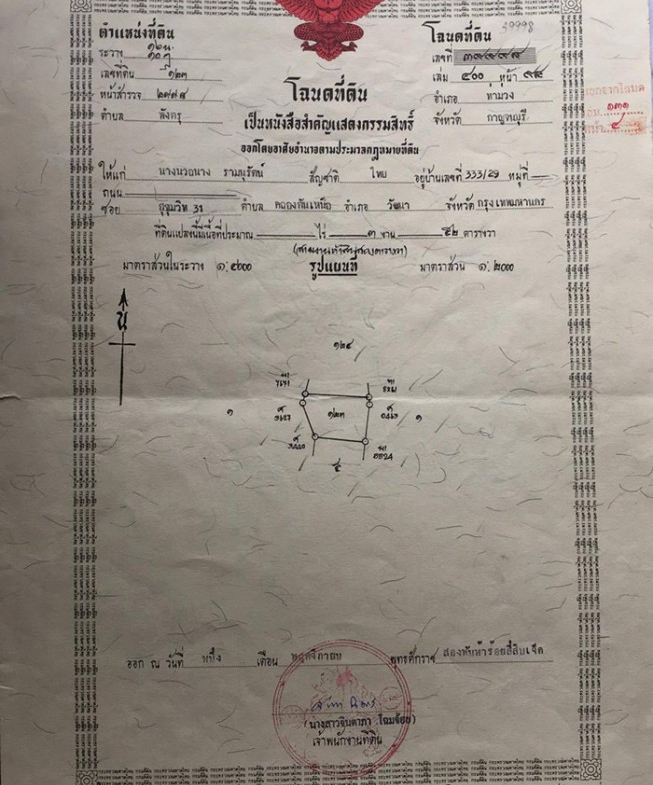 ตำแหน่งที่ดิน
ระวาง
เลขที่ดิน ๑๒๓
หน้าสำรวจ ๒๙๙๔
ตำบล พังตรุ
39998
โฉนดที่ดิน
เลขที่ ๓๙๙๙๘
เล่ม ๔๐๐ หน้า ๙๘
อำเภอ ท่าม่วง
จังหวัด กาญจนบุรี
โฉนดที่ดิน
เป็นหนังสือสำคัญแสดงกรรมสิทธิ์
ออกโดยอาศัยอำนาจตามประมวลกฎหมายที่ดิน
ให้แก่ นางนวอนาง รามบุรัตน์ สัญชาติ ไทย อยู่บ้านเลขที่ 333/29 หมู่ที่
ถนน
ซอย สุขุมวิท 31 ตำบล คลองตันเหนือ อำเภอ วัฒนา จังหวัด กรุงเทพมหานคร
ที่ดินแปลงนี้มีเนื้อที่ประมาณ ไร่ ๓ งาน ๕๒ ตารางวา
(สามงานห้าสิบสองตารางวา)
มาตราส่วนในระวาง ๑:๔๐๐๐ รูปแผนที่ มาตราส่วน ๑:๒๐๐๐
น
๑๒๔
๑๒๓
๑
๑
๕
ออก ณ วันที่ หนึ่ง เดือน พฤศจิกายน พุทธศักราช สองพันห้าร้อยสี่สิบเจ็ด
(นางสาวจินดาภา โฉมจ้อย)
เจ้าพนักงานที่ดิน